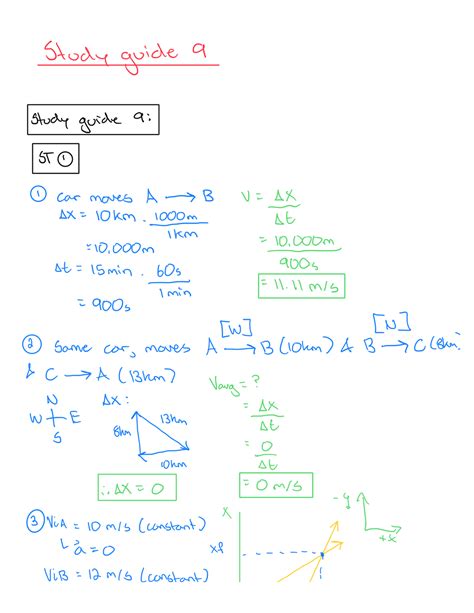 Study guide 9
Study guide 9:
ST ①
① car moves A → B
Δx = 10km . 1000m
1km
= 10,000m
Δt = 15min . 60s
1 min
= 900s
V = Δx
Δt
= 10,000m
900s
= 11.11 m/s
[W] [N]
② Same car, moves A → B (10km) & B → C (8km)
& C → A (13km)
N
W E
S
Δx:
8km 13km
10km
∴ Δx = 0
Vavg = ?
= Δx
Δt
= 0
Δt
= 0 m/s
③ ViA = 10 m/s (constant)
↳ a = 0
ViB = 12 m/s (constant)
x
xf
-y
+x